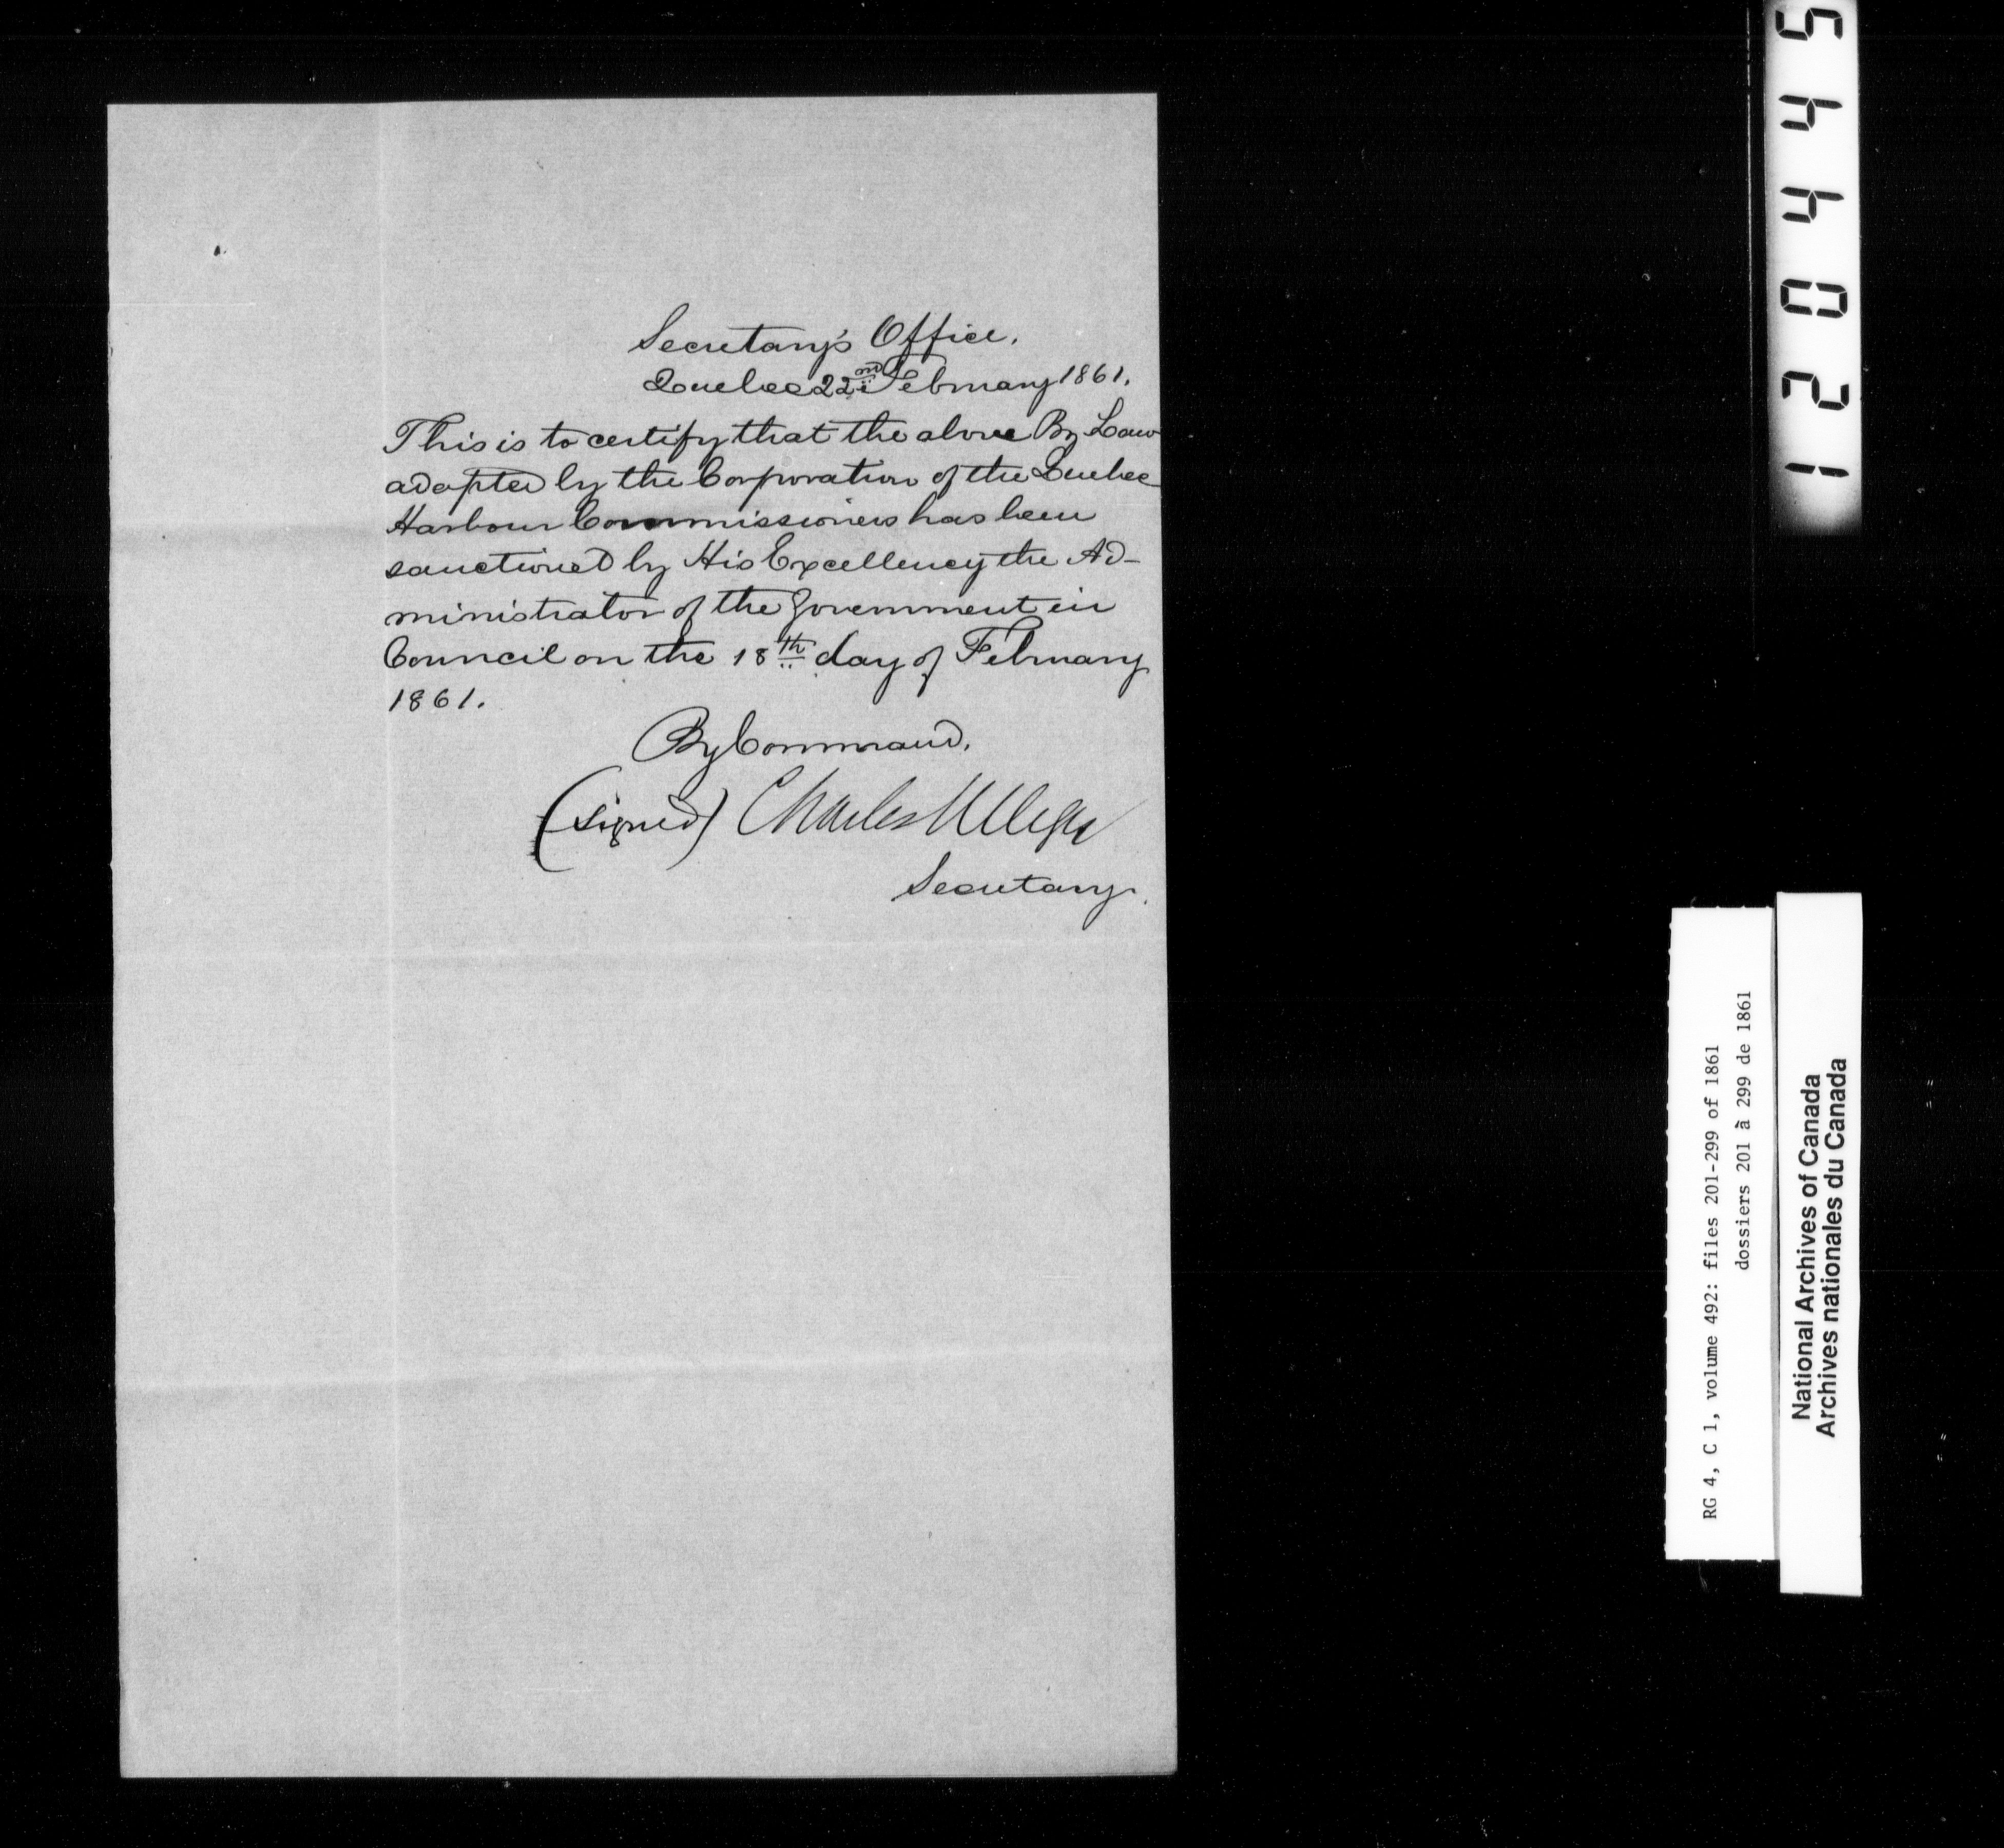 Secretary's Office.
Quebec 22nd February 1861.
This is to certify that the above By Law
adopted by the Corporation of the Quebec
Harbour Commissioners has been
sanctioned by His Excellency the Ad-
ministrator of the Government in
Council on the 18th day of February
1861.
By Command.
(signed) Charles Alleyn
Secretary.
5
4
4
0
2
1
RG 4, C 1, volume 492: files 201-299 of 1861
dossiers 201 à 299 de 1861
National Archives of Canada
Archives nationales du Canada